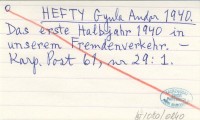 HEFTY Gyula Andor 1940.
Das erste Halbjahr 1940 in
unserem Fremdenverkehr. –
Karp. Post 61, nr 29: 1.